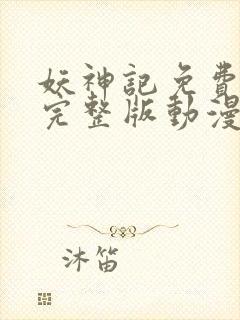 妖神記免費
完整版動漫
沐笛